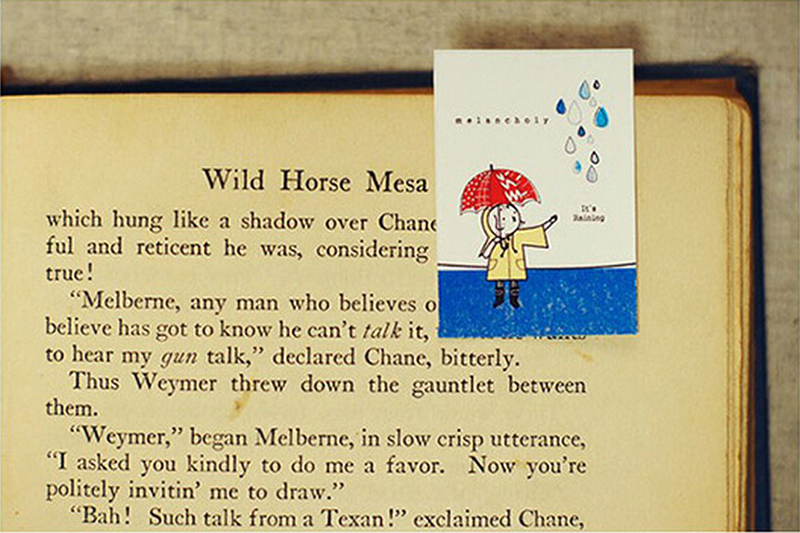 Wild Horse Mesa
which hung like a shadow over Chane
ful and reticent he was, considering
true!
"Melberne, any man who believes
believe has got to know he can't talk it,
to hear my gun talk," declared Chane, bitterly.
Thus Weymer threw down the gauntlet between
them.
"Weymer," began Melberne, in slow crisp utterance,
"I asked you kindly to do me a favor. Now you're
politely invitin' me to draw."
"Bah! Such talk from a Texan!" exclaimed Chane,
melancholy
It's
Raining